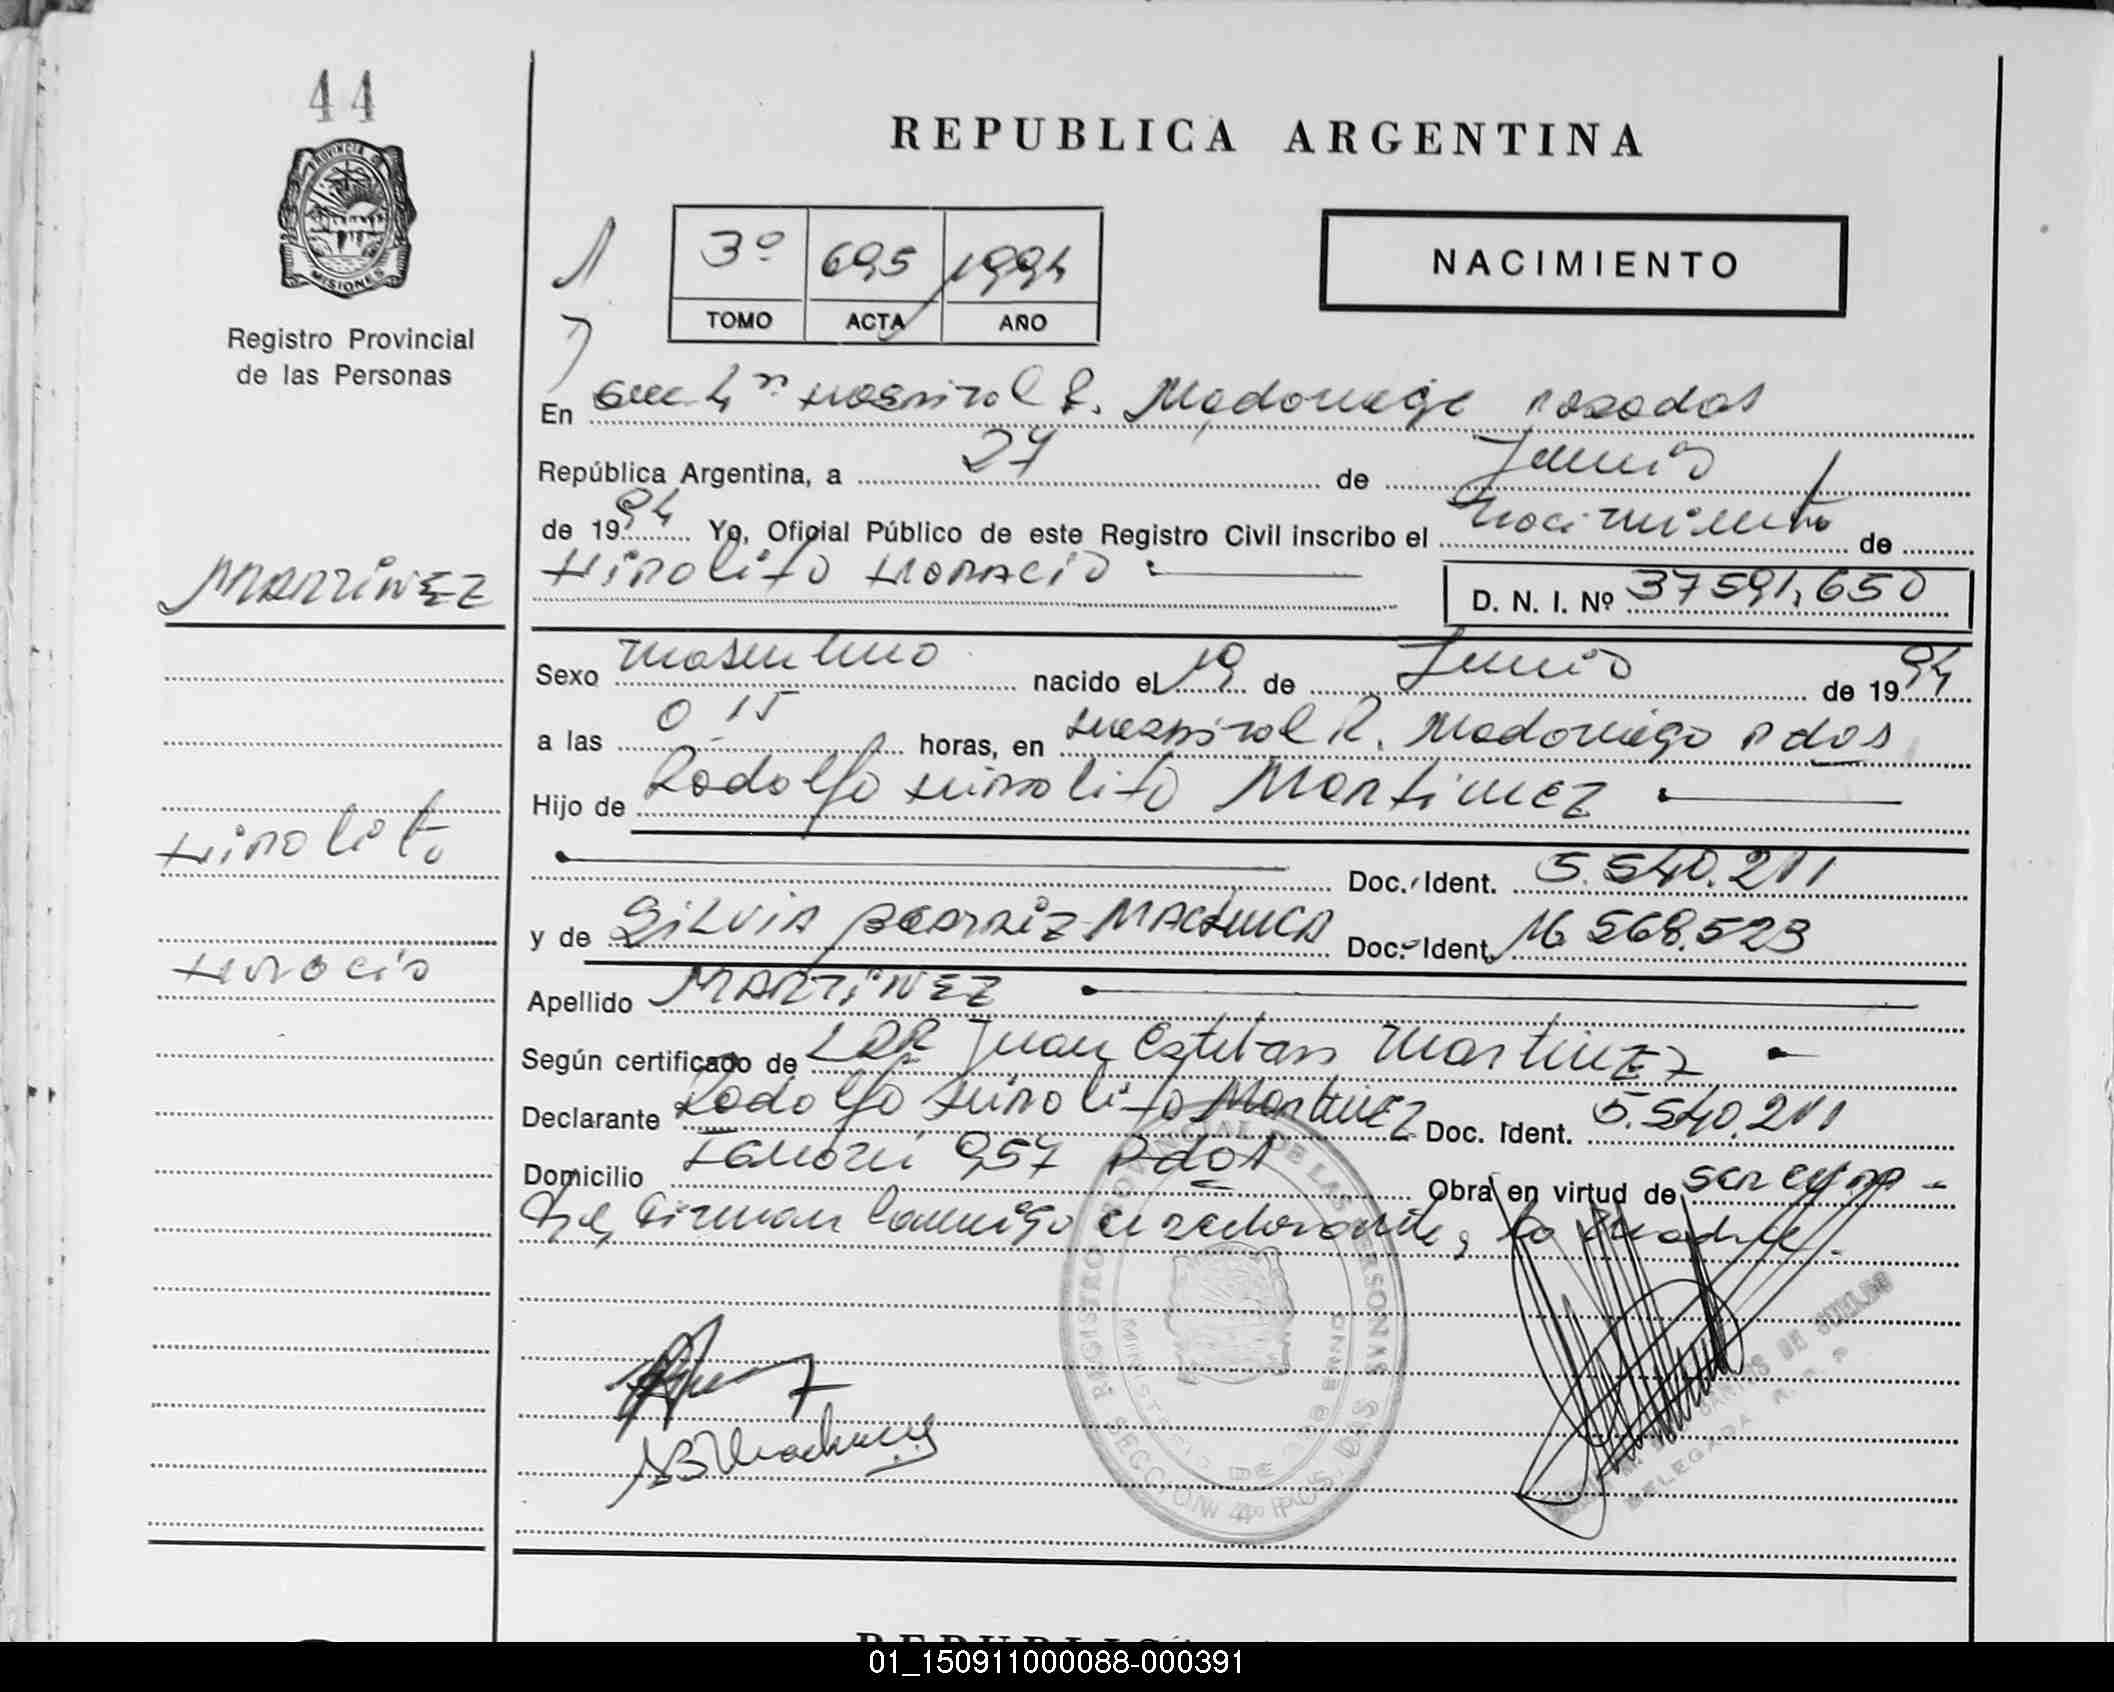 44
PROVINCIA DE
MISIONES
Registro Provincial
de las Personas
REPUBLICA ARGENTINA
3º 695 1994
TOMO ACTA AÑO
NACIMIENTO
En Hospital R. Madariaga Posadas
República Argentina, a 27 de Junio
de 1994 Yo, Oficial Público de este Registro Civil inscribo el nacimiento de
MARTINEZ
Hipolito Horacio
D. N. I. Nº 37591,650
Sexo masculino nacido el 19 de Junio de 1994
a las 0 15 horas, en Hospital R. Madariaga Pdas
Hijo de Rodolfo Hipolito Martinez
Hipolito
Doc. Ident. 5.540.211
y de SILVIA BEATRIZ MACHUCA Doc. Ident. 16.568.523
Horacio
Apellido MARTINEZ
Según certificado de Juan Esteban Martinez
Declarante Rodolfo Hipolito Martinez Doc. Ident. 5.540.211
Domicilio 957 Pdas Obra en virtud de ser
Firman conmigo el declarante, la madre.
REGISTRO PROVINCIAL DE LAS PERSONAS
DELEGADA R. P. P.
REPUBLICA
01_150911000088-000391